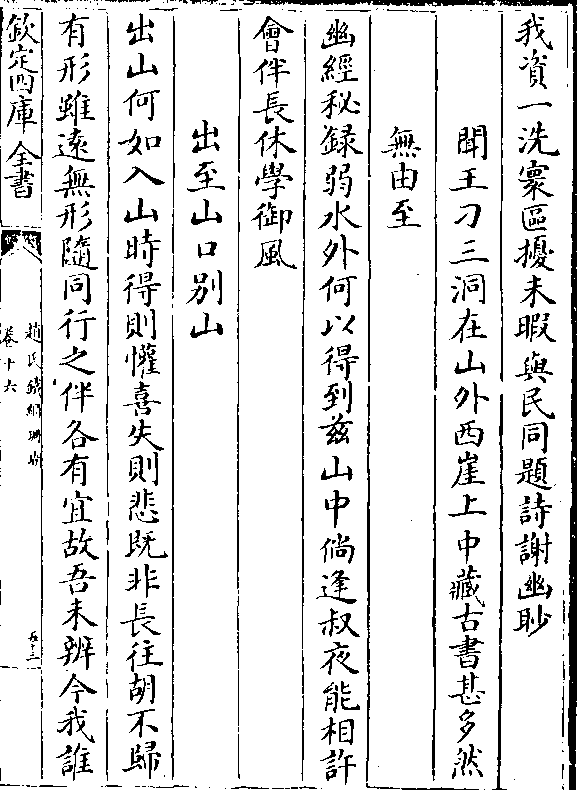 我資一洗寰區擾未暇與民同題詩謝幽眇
聞王刀三洞在山外西崖上中藏古書甚多然
無由至
幽經秘録弱水外何以得到茲山中倘逢叔夜能相許
會伴長休學御風
出至山口别山
出山何如入山時得則懽喜失則悲既非長往胡不歸
有形雖遠無形隨同行之伴各有宜故吾未辨今我誰
欽定四庫全書
趙氏鐵網珊瑚
卷十六
五十三